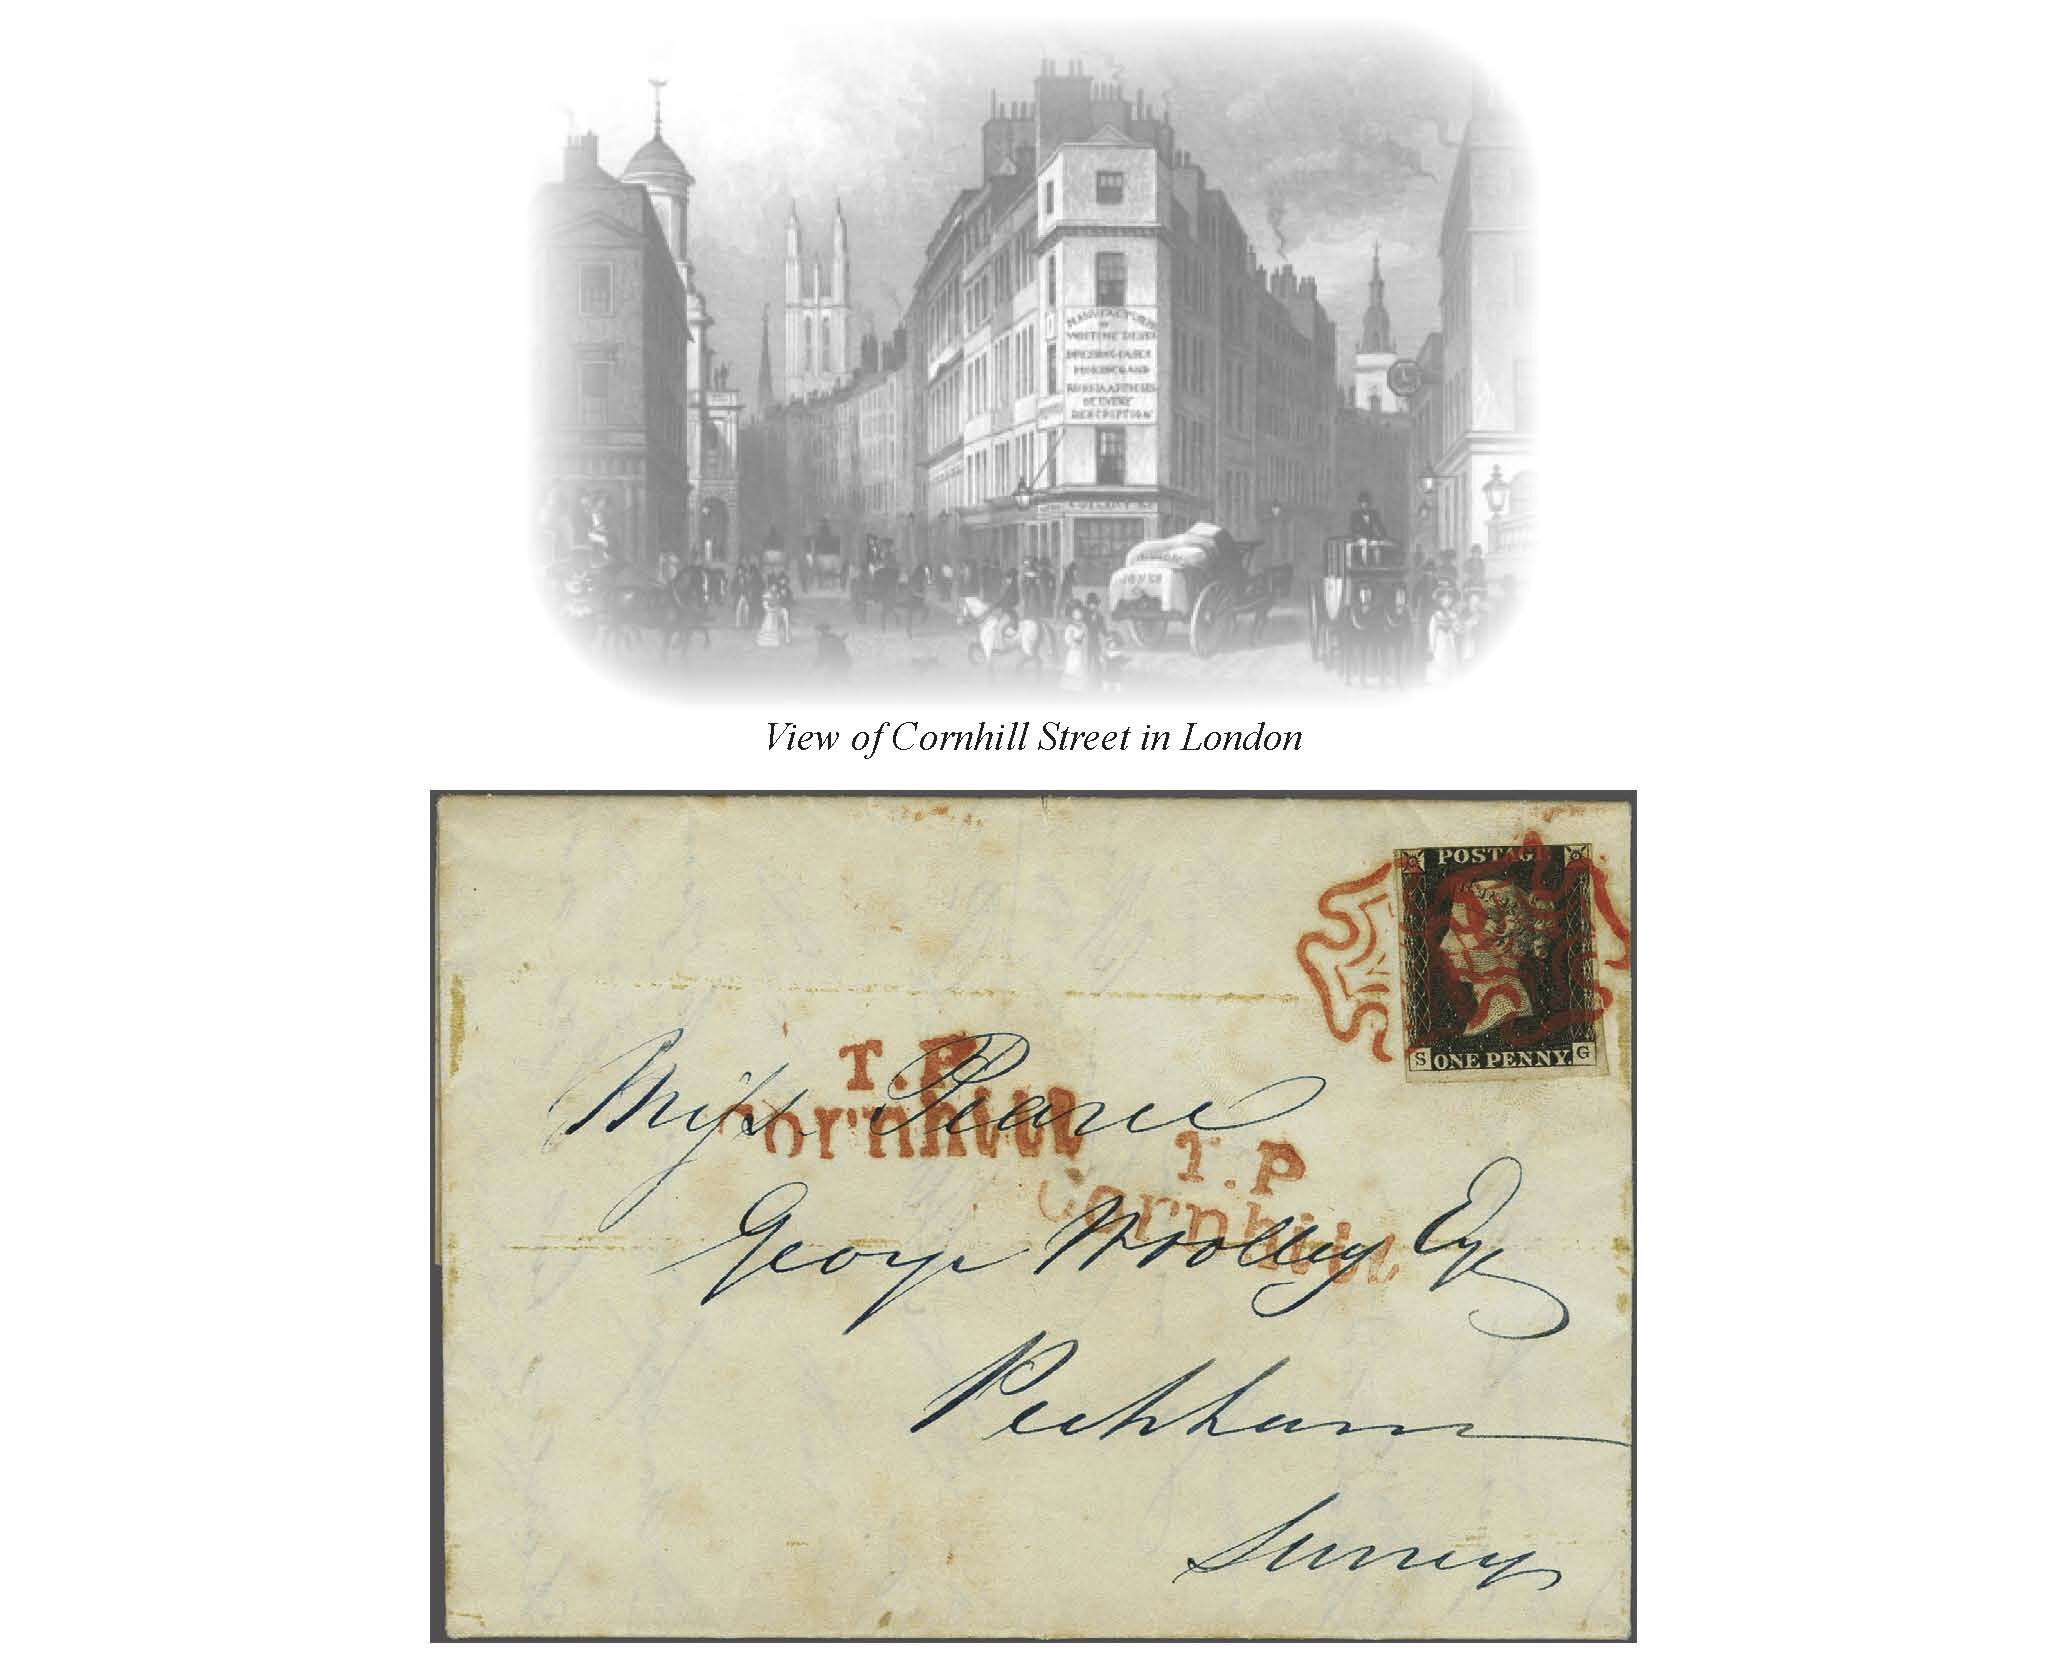 MANUFACTURER
OF
WRITING DESKS
DRESSING CASES
MOROCCO AND
RUSSIA ARTICLES
OF EVERY
DESCRIPTION
JONES
View of Cornhill Street in London
POSTAGE
S ONE PENNY. G
T.P
Cornhill
Miss Pearce
T.P
Cornhill
George Woolley Esq
Peckham
Surrey